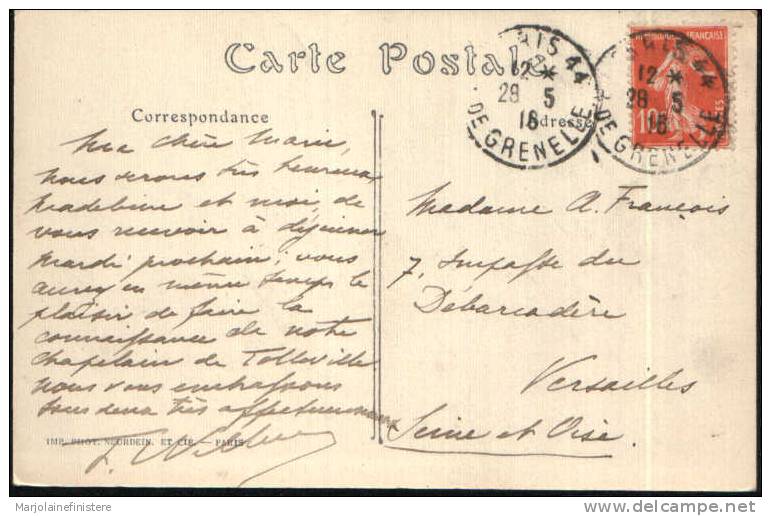 Carte Postale
Correspondance
Adresse
PARIS 44
12 *
28 5
16
DE GRENELLE
PARIS 44
12 *
28 5
16
DE GRENELLE
10
Ma chère Marie,
nous serons très heureux
Madeleine et moi, de
vous recevoir à déjeuner
Mardi prochain; vous
aurez en même temps le
plaisir de faire la
connaissance de notre
chapelain de Tolleville
nous vous embrassons
tous deux très affectueusement
Madame A. François
7, Impasse du
Débarcadère
Versailles
Seine et Oise.
IMP. PHOT. NEURDEIN. ET CIE. — PARIS
Marjolainefinistere
www.delcampe.net